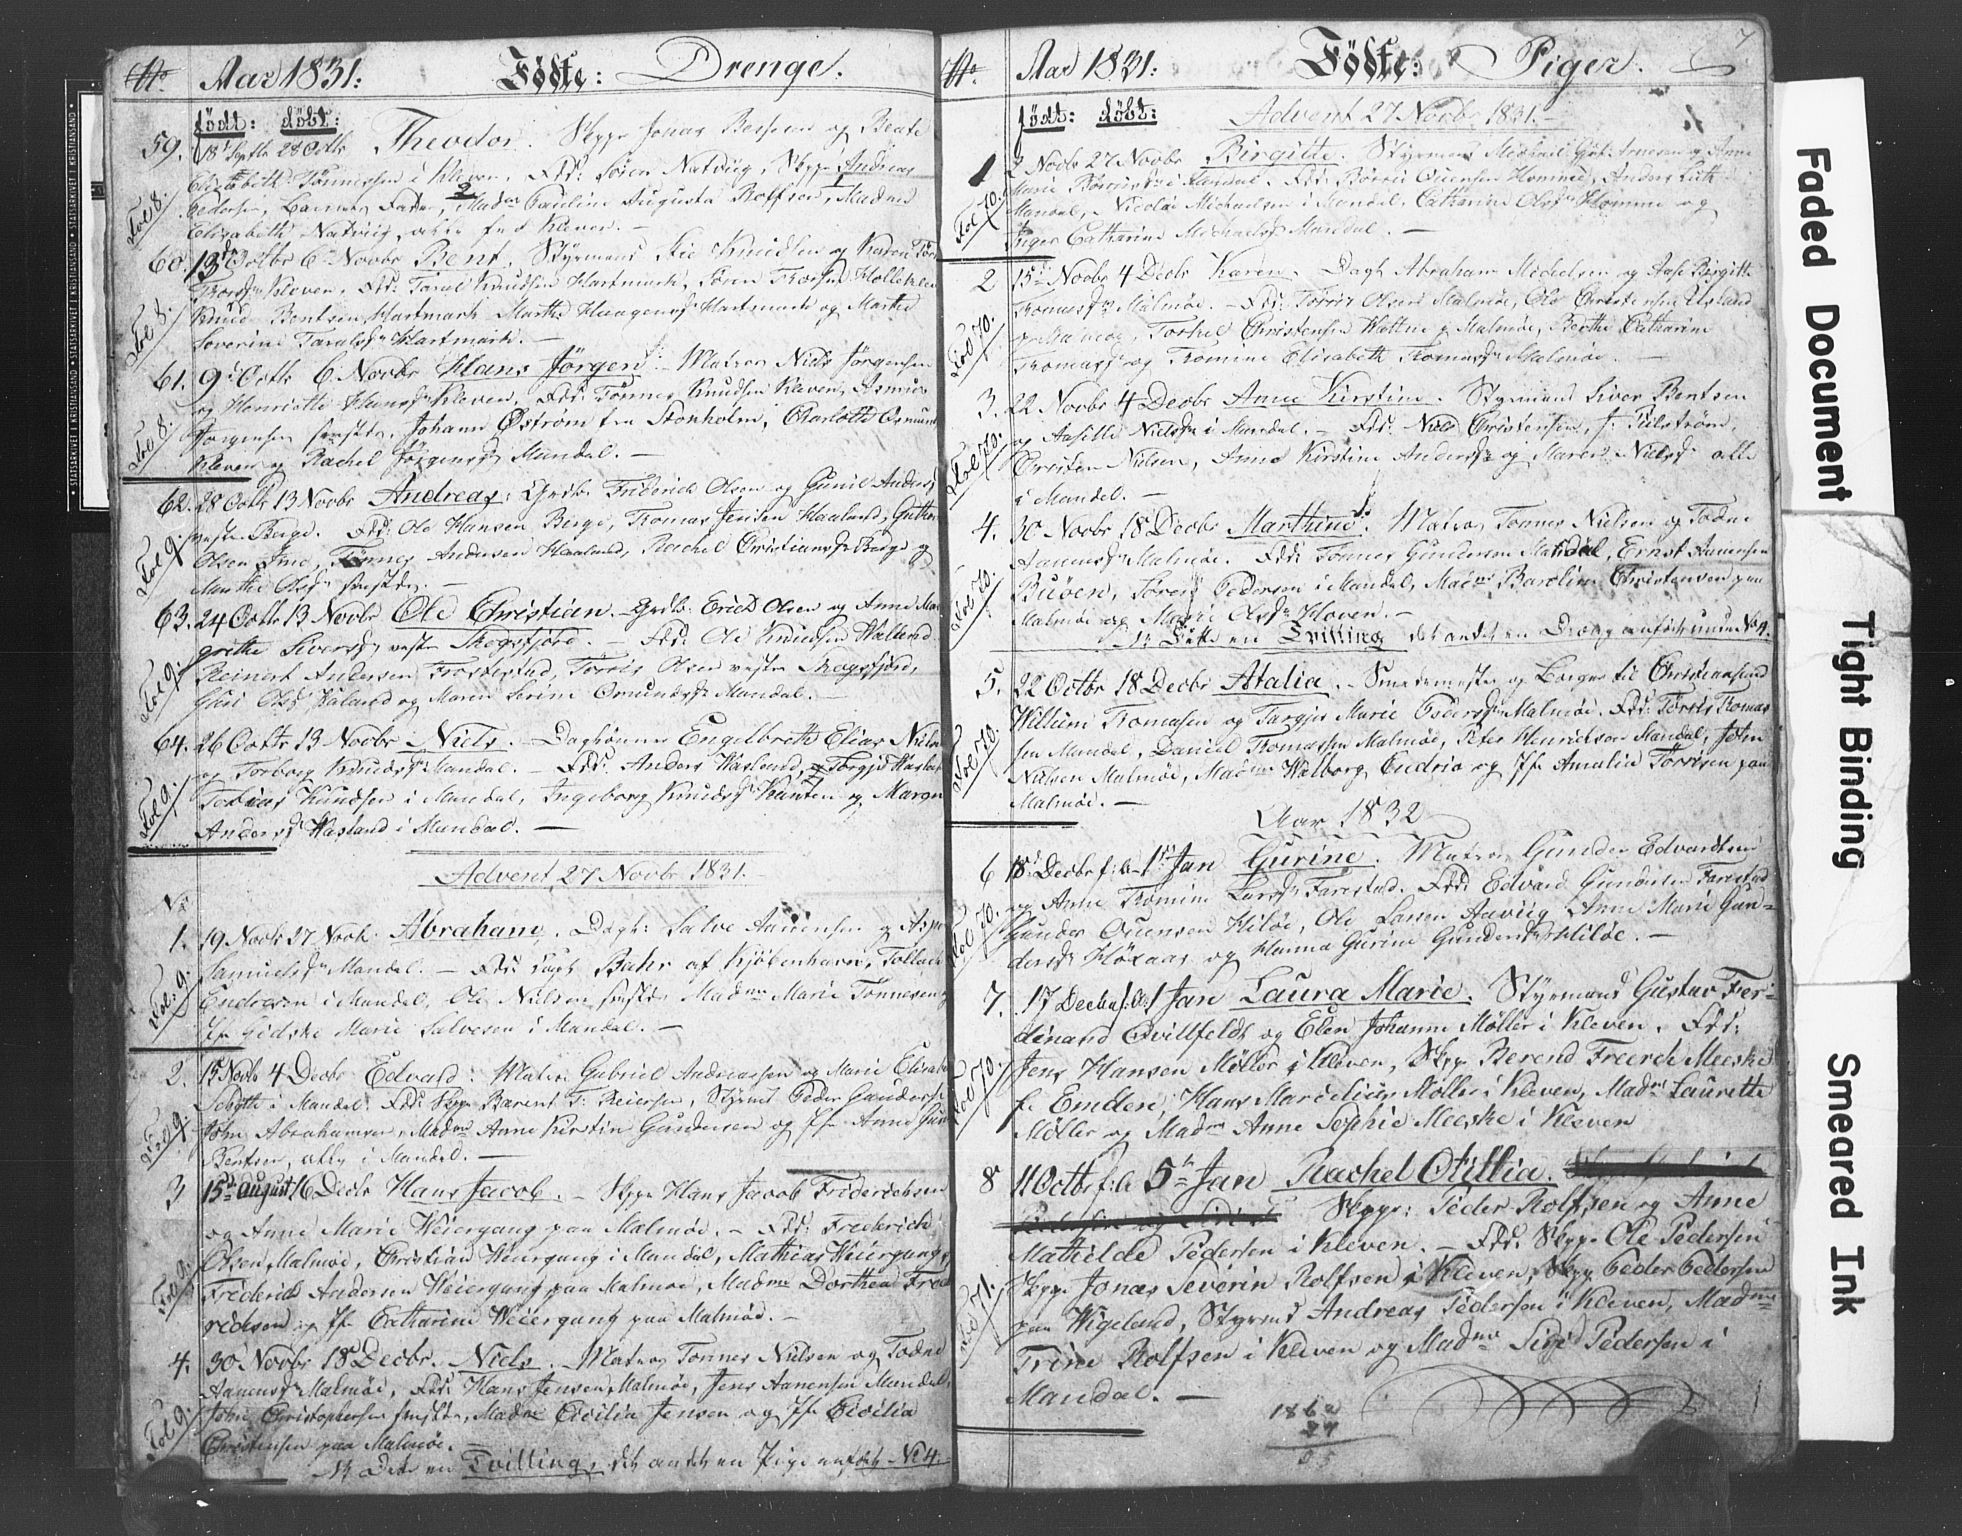 No Aar 1831: Födte: Drenge.
födt: döbt:
59. 18 Septbr 28 Octbr Theodor. Skpp Jonas og Beate
Elisabeth Tönnessen i Kleven. Fdd: Sören Natvig, Skpp Andreas
Pedersen, Barnets Fader, Madme Pauline Augusta Rolfsen, Madme
Elisabeth Natvig, af Kleven. –
Fol 8.
60. 13de Octbr 6 Novbr Bent. Styrmand Knudsen og Karen
Kleven. Fdd: Taral Knudsen Hartmark, Sören
Knud Bentsen Hartmark Marthe Haagensd Hartmark og Marthe
Severine Taralsd Hartmark. –
Fol 8.
61. 9 Octbr 6 Novbr Hans Jörgen. Matros Niels Jörgensen
og Henriette Hansd Kleven. Fdd: Tönnes Knudsen Kleven, Asmus
Jörgensen Johann Öström fra Stokholm, Charlotte
Kleven og Rachel Jörgensd Mandal. –
Fol 8.
62. 28 Octbr 13 Novbr Andreas: Grdb. Friderick Olsen og Gunil Andersd
vestre Berge. Fdd: Ole Hansen Berge, Tromas Jensen Haaland,
Olsen Ime, Tönnes Andersen Haaland, Rachel Christiansd Berge og
Marthe Olsd –
Fol 9.
63. 24 Octbr 13 Novbr Ole Christian. Grdb: Erick Olsen og Anne Mar
grethe Siversd vestre Skogsfjord. – Fdd: Ole Knudsen
Reinert Andersen Frostestad, Torris Olsen vestre Skogsfjord,
Guri Olsd og Maren Serine Omundsd Mandal. –
Fol 9.
64. 26 Octbr 13 Novbr Niels. – Daglönner Engelbreth Elias
og Torborg Knudsd Mandal. – Fdd: Anders Hasland, Torgjer
Tobias Knudsen i Mandal, Ingeborg Knudsd og
Andersd Hasland i Mandal. –
Fol 9.
Advent 27 Novbr 1831. –
1. 19 Novbr 27 Novbr. Abraham. Dagl: Salve Aanensen og
Samuelsd Mandal. – Fdd: Capt Bahr af Kjöbenhavn, Tollak
Endresen i Mandal, Ole Nielsen Madme Marie Tönnesen og
Jfr Gidske Marie Salvesen i Mandal. –
Fol: 9.
2. 15 Novbr 4 Decbr Edvard: Matros Gabriel Andreassen og Marie
Schytte i Mandal: Fdd: Skpp Barent T: Reiersen, Styrmd Peder Gundersen
John Abrahamsen, Madme Anne Kirstin Gundersen og Jfr Anne
Bentsen, alle i Mandal. –
Fol 9.
3 15de August 16 Decbr Hans Jacob. – Skpp Hans Jacob Friderichsen
og Anne Marie Weiergang paa Malmöe. – Fdd: Frederich
Olsen Malmöe, Christian Weiergang i Mandal, Mathias Weiergang,
Friderich Andersen Weiergang paa Malmöe, Madme Dorthea Frede
richsen og Jfr Catharine Weiergang paa Malmöe. –
Fol 9.
4. 30 Novbr 18 Decbr. Niels. – Matros Tönnes Nielsen og Todne
Aanensd Malmöe. Fdd: Hans Jensen Malmöe, Jens Aanensen Mandal,
John Christophersen Madme Cicilia Jensen og Jfr Cicilia
Christensen paa Malmöe. –
NB Dette en Tvilling, det andet en Pige anfört No 4.
Fol 9.
No Aar 1831: Födte: Piger. 7
födt: döbt: Advent 27 Novbr 1831. –
1 2 Novbr 27 Novbr Birgitte. Styrmand Michael Arnesen og Anne
Marie i Mandal. Fdd: Börre Ouensen Homme, Anders Lütt
Mandal, Nicolai Michaelsen i Mandal, Catharine Olsd Homme og
Inger Catharine Michaelsd Mandal. –
Fol 70.
2 15de Novbr 4 Decbr Karen. Dagl: Abraham Michelsen og Aase Birgitte
Tromasd Malmöe. – Fdd: Torris Olsen Malmöe, Ole Christensen
Torkel Christensen paa Malmöe, Berthe Catharine
Tromasd og Tromine Elisabeth Tromasd Malmöe. –
Fol 70.
3. 22 Novbr 4 Decbr Anne Kirstine. Styrmand Siver Bentsen
og Aasille Nielsd i Mandal. – Fdd: Niels Christensen, J:
Christen Nielsen, Anne Kirstine Andersd og Maren Nielsd alle
i Mandal. –
Fol 70.
4. 30 Novbr 18 Decbr Marthine. Matros Tönnes Nielsen og Todne
Aanensd Malmöe. Fdd: Tönnes Gundersen Mandal, Ernst Aanensen
Buöen, Sören Pedersen i Mandal, Madme Baroline Christensen paa
Malmöe og Marie Olsd Kleven. –
NB Dette en Tvilling, det andet en Dreng anfört under No 4.
Fol 70.
5. 22 Octbr 18 Decbr Atalia. – Smedemester og Borger til Christiansand
Willum Tromasen og Targjer Marie Pedersd Malmöe. Fdd: Torris Tromas
sen Mandal, Daniel Tromassen Malmöe, Peter Henricksen Mandal, John
Nielsen Malmöe, Madme Walborg Endrio og Jfr Amalia Torrisen paa
Malmöe. –
Fol 70.
Aar 1832
6 18 Decbr f: A: 1st Jan Gurine. Matros Gunder Edvardsen
og Anne Tromine Larsd Farestad. Fdd: Edvard Gundersen Farestad
Gunder Ouensen Hilöe, Ole Larsen Aavig, Anne Marie Gun=
dersd Höxaas og Hanna Gurine Gundersd Hilöe. –
Fol 70.
7. 17 Decbr f: A: 1 Jan Laura Marie. Styrmand Gustav Fer=
dinand Qvillfeldt og Elen Johanne Möller i Kleven. Fdd:
Jens Hansen Möller i Kleven, Skpp Berend Freerck Meeske
f. Emden, Hans Marcelius Möller i Kleven, Madme Laurette
Möller og Madme Anne Sophie Meeske i Kleven
Fol 70.
8 11 Octbr f: A: 5te Jan Rachel Otillia.
Skpp: Peder Rolfsen og Anne
Mathilde Pedersen i Kleven. – Fdd: Skpp Ole Pedersen
Skpp Jonas Severin Rolfsen i Kleven, Skpp Peder Pedersen
paa Wigeland, Styrmd Andreas Pedersen i Kleven, Madme
Trine Rolfsen i Kleven og Madme Pedersen i
Mandal. –
Fol 71.
Faded Document
Tight Binding
Smeared Ink
STATSARKIVET I KRISTIANSAND • STATSARKIVET I KRISTIANSAND •